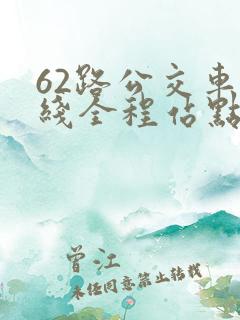 62路公交車
綫全程佔點
曾江
未經同意禁止轉載